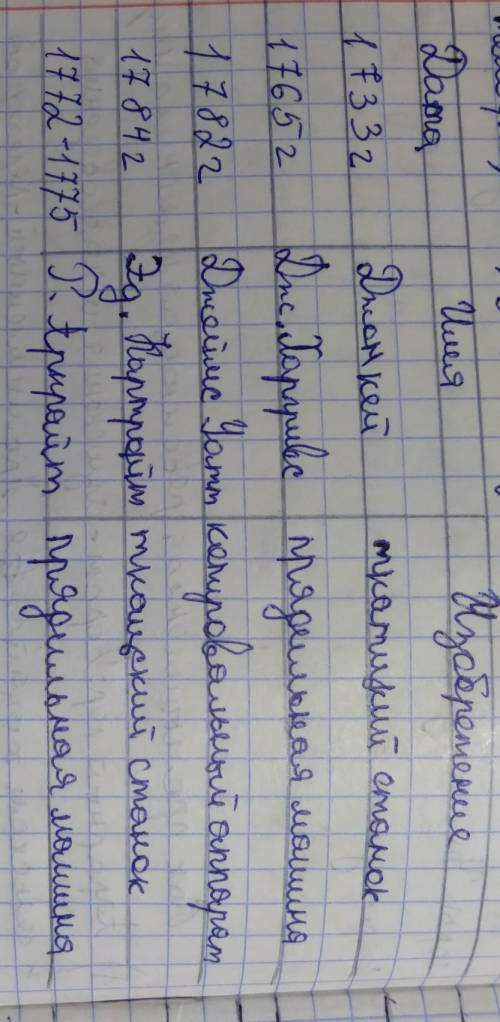 Дата Имя Изобретение
1733г Джон кей ткатцкий станок
1765г Дж. Харгривс прядельная машина
1782г Джеймс Уатт копировальный аппарат
1784г Эд. Картрайт ткацский станок
1772-1775 Р. Аркрайт прядильная машина